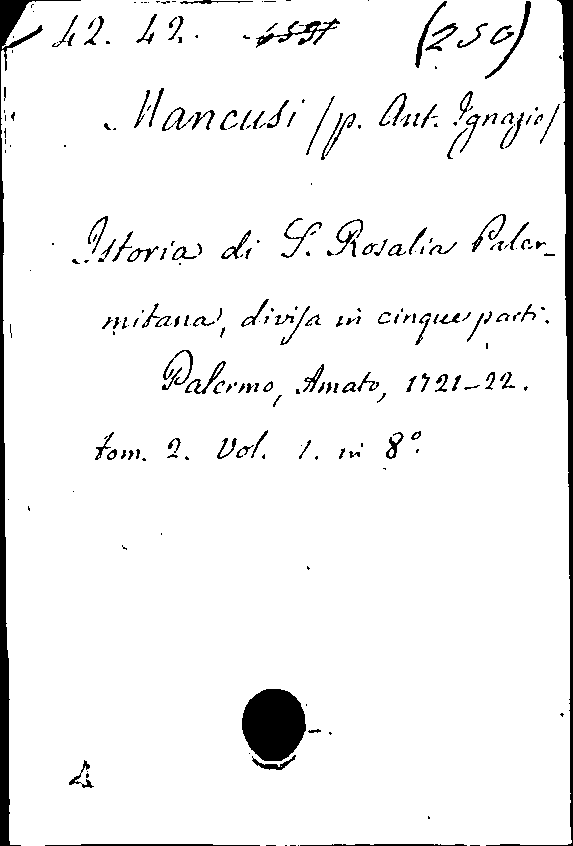 42. 42. (250)
Mancusi /p. Ant. Ignazio/
Istoria di S. Rosalia Paler-
mitana, divisa in cinque parti.
Palermo, Amato, 1721-22.
tom. 2. Vol. 1. in 8º.